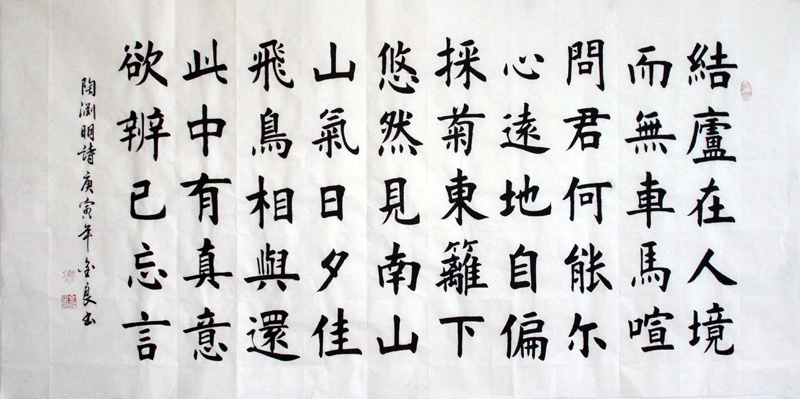 結廬在人境
而無車馬喧
問君何能尔
心遠地自偏
採菊東籬下
悠然見南山
山氣日夕佳
飛鳥相與還
此中有真意
欲辨已忘言
陶渊明詩庚寅年金良书